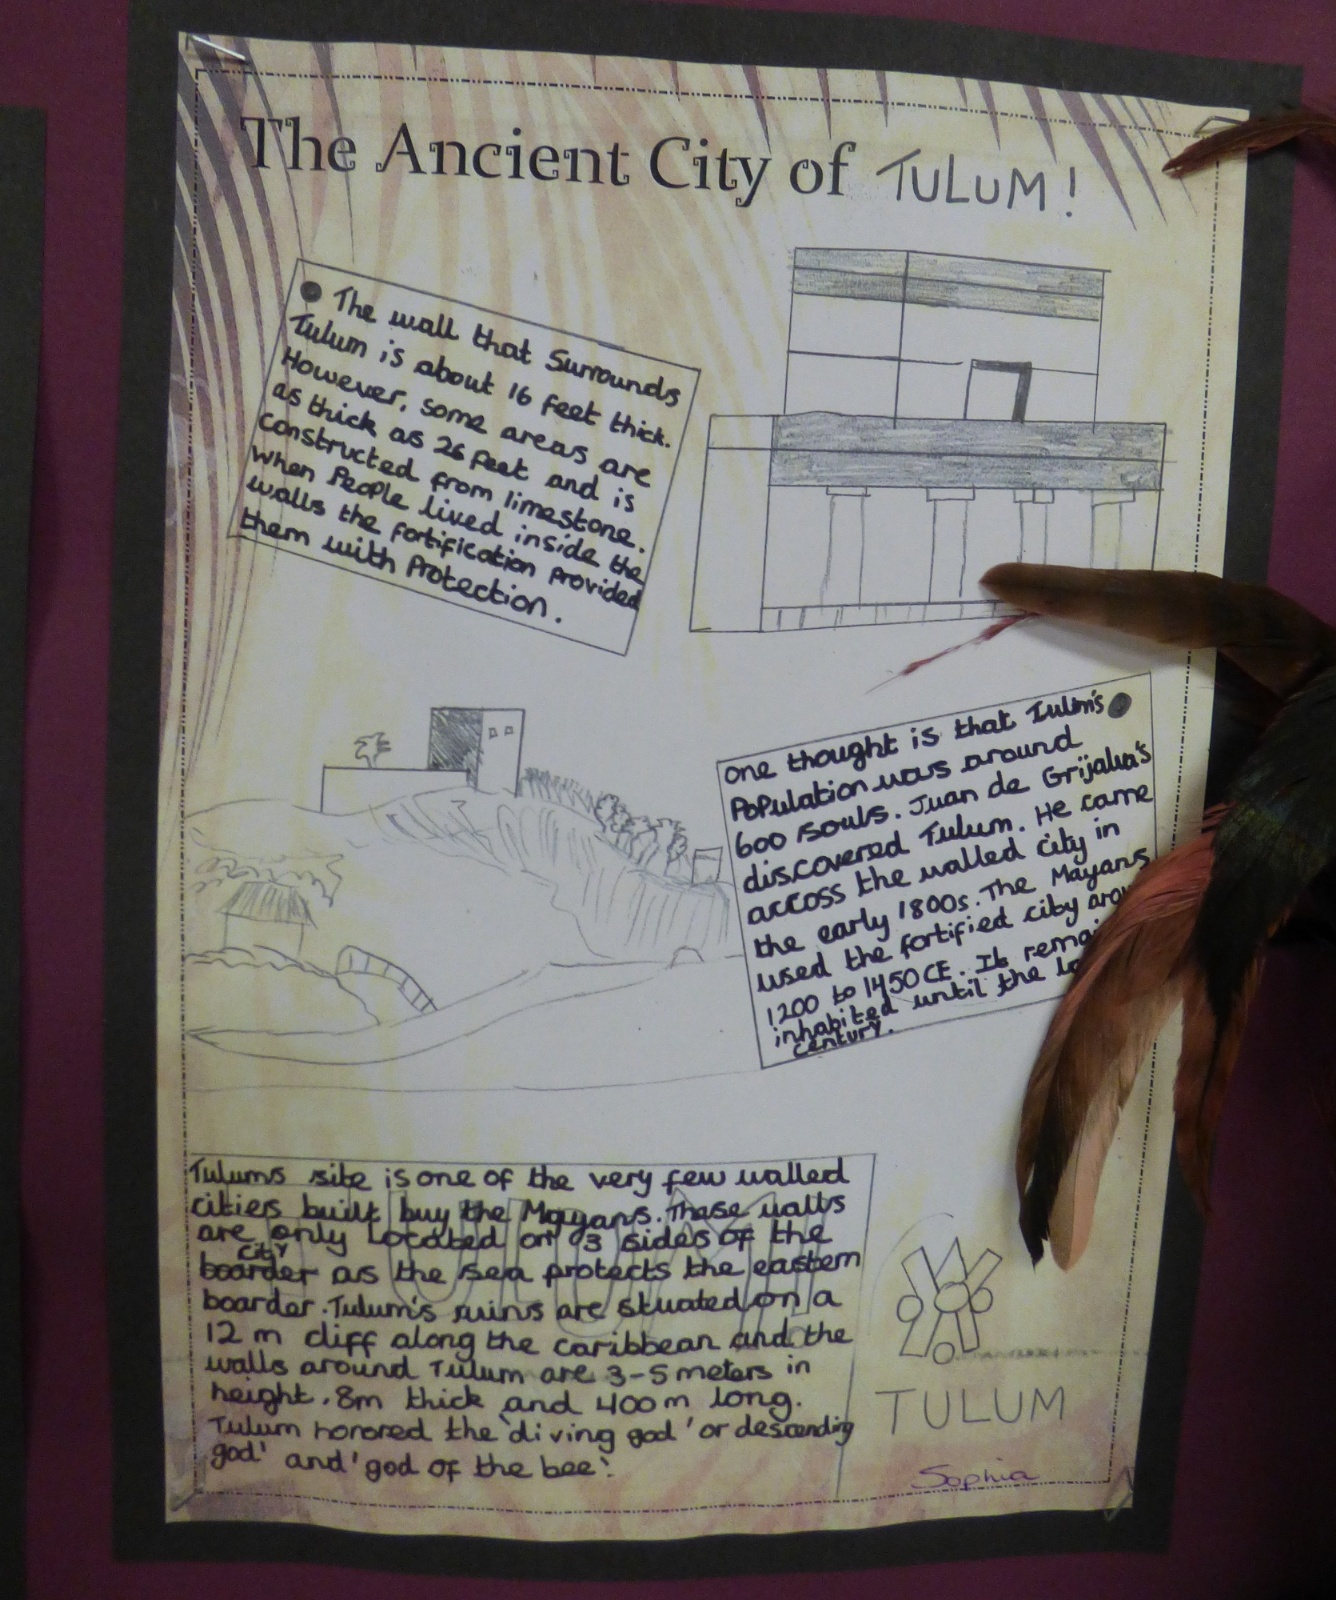 The Ancient City of TULUM!
The wall that Surrounds
Tulum is about 16 feet thick.
However, some areas are
as thick as 26 feet and is
constructed from limestone.
when People lived inside the
walls the fortification Provided
them with Protection.
one thought is that Tulm's
Population was around
600 souls. Juan de Grijalva's
discovered Tulum. He came
accoss the walled city in
the early 1800s. The Mayans
used the fortified city
1200 to 1450 CE. It
inhabited until the
century.
Tulums site is one of the very few walled
cities built buy the Mayans. Those walls
are only Located on 3 sides of the
city
boarder as the sea protects the eastern
boarder. Tulum's ruins are stuated on a
12 m cliff along the caribbean and the
walls around Tulum are 3-5 meters in
height. 8m thick and 400 m long.
Tulum honored the 'diving god' or descending
god' and 'god of the bee'.
TULUM
Sophia